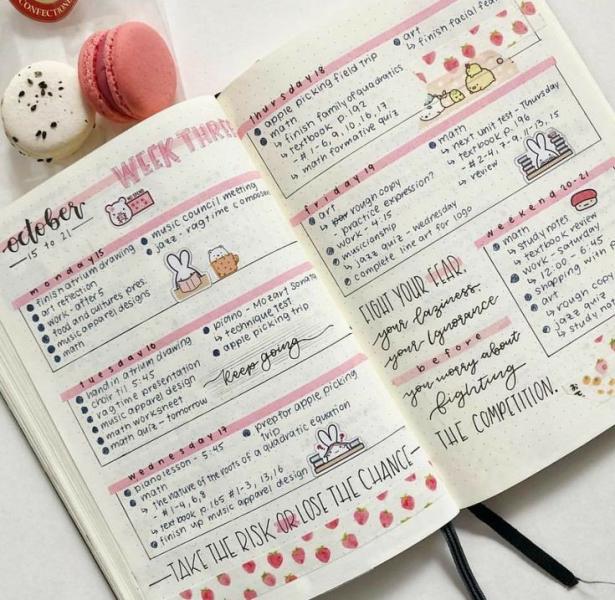 CONFECTION
WEEK THRE
october
15 to 21
monday 15
finish atrium drawing
art reflection
work - after 5
food and cultures pres.
music apparel designs
math
music council meeting
jazz - ragtime
tuesday 16
hand in atrium drawing
choir til 5:45
ragtime presentation
music apparel design
math worksheet
math quiz - tomorrow
piano - Mozart sonata
↳ technique test
apple picking trip
keep going
wednesday 17
piano lesson - 5:45
math
↳ the nature of the roots of a quadratic equation
- # 1-4, 6, 8
↳ textbook p. 165 # 1-3, 13, 16
finish up music apparel design
prep for apple picking
trip
TAKE THE RISK OR LOSE THE CHANCE
thursday 18
apple picking field trip
math
↳ finish family of quadratics
↳ textbook p. 192
- # 1-6, 9, 10, 16, 17
↳ math formative quiz
art
↳ finish facial
friday 19
art
↳ rough copy
- practice expression?
work - 4:15
musicianship
↳ jazz quiz - wednesday
complete line art for logo
math
↳ next unit test - Thursday
↳ textbook p. 196
↳ # 2-4, 7-9, 11-13, 15
↳ review
weekend 20-21
math
↳ study notes
↳ textbook review
work - saturday
↳ 12:00 - 6:45
shopping with
art
↳ rough
jazz quiz
↳ study
FIGHT YOUR FEAR,
your laziness,
your ignorance
before
you worry about
fighting
THE COMPETITION.